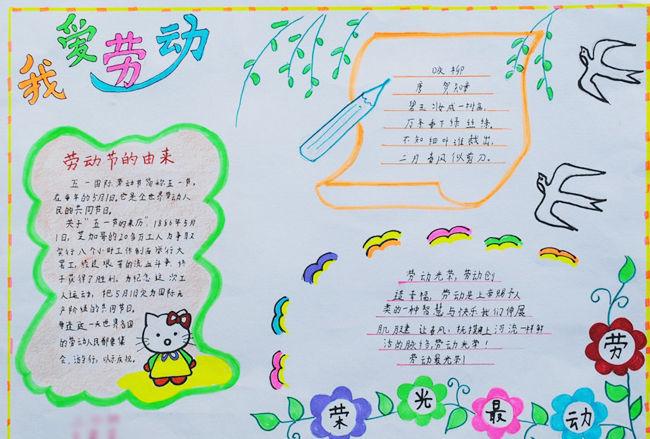 我爱劳动
劳动节的由来
五一国际劳动节简称五一节,
在每年的5月1日。它是全世界劳动人
民的共同节日。
关于"五一节的来历",1886年5月
1日,芝加哥的20多万工人为争取
实行八个小时工作制而举行大
罢工,经过艰苦的流血斗争,终
于获得了胜利。为纪念这次工
人运动,把5月1日定为国际无
产阶级的共同节日。
每在这一天世界各国
的劳动人民都要集
会,游行,以示庆祝。
咏柳
唐 贺知章
碧玉妆成一树高,
万条垂下绿丝绦。
不知细叶谁裁出,
二月春风似剪刀。
劳让光荣,劳动创
造幸福,劳动是上帝赐予人
类的一种智慧与快乐我们伸展
肌肤 春风,抚摸 河流一样鲜
活的脉络,劳动光荣!
劳动最光荣!
荣光最动劳